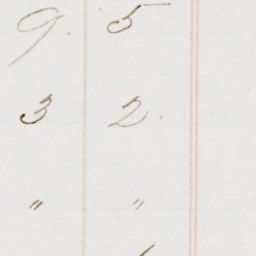 9. 5
3 2.
" "